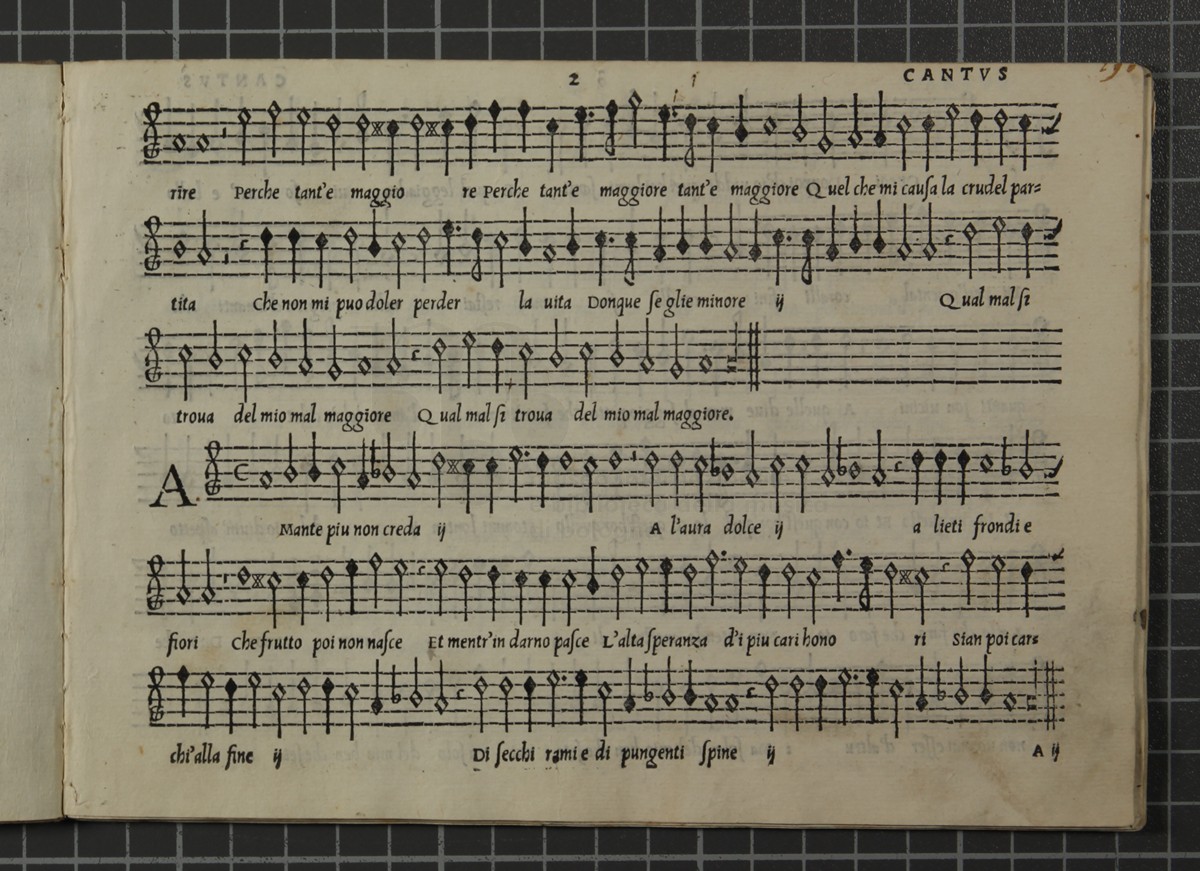 2 1 CANTVS
rire Perche tant'e maggio re Perche tant'e maggiore tant'e maggiore Quel che mi cauſa la crudel par=
tita Che non mi puo doler perder la uita Donque ſe glie minore ij Qual mal ſi
troua del mio mal maggiore Qual mal ſi troua del mio mal maggiore.
A Mante piu non creda ij A l'aura dolce ij a lieti frondi e
fiori Che frutto poi non naſce Et mentr'in darno paſce L'alta ſperanza d'i piu cari hono ri Sian poi cars
chi'alla fine ij Di ſecchi rami e di pungenti ſpine ij
A ij